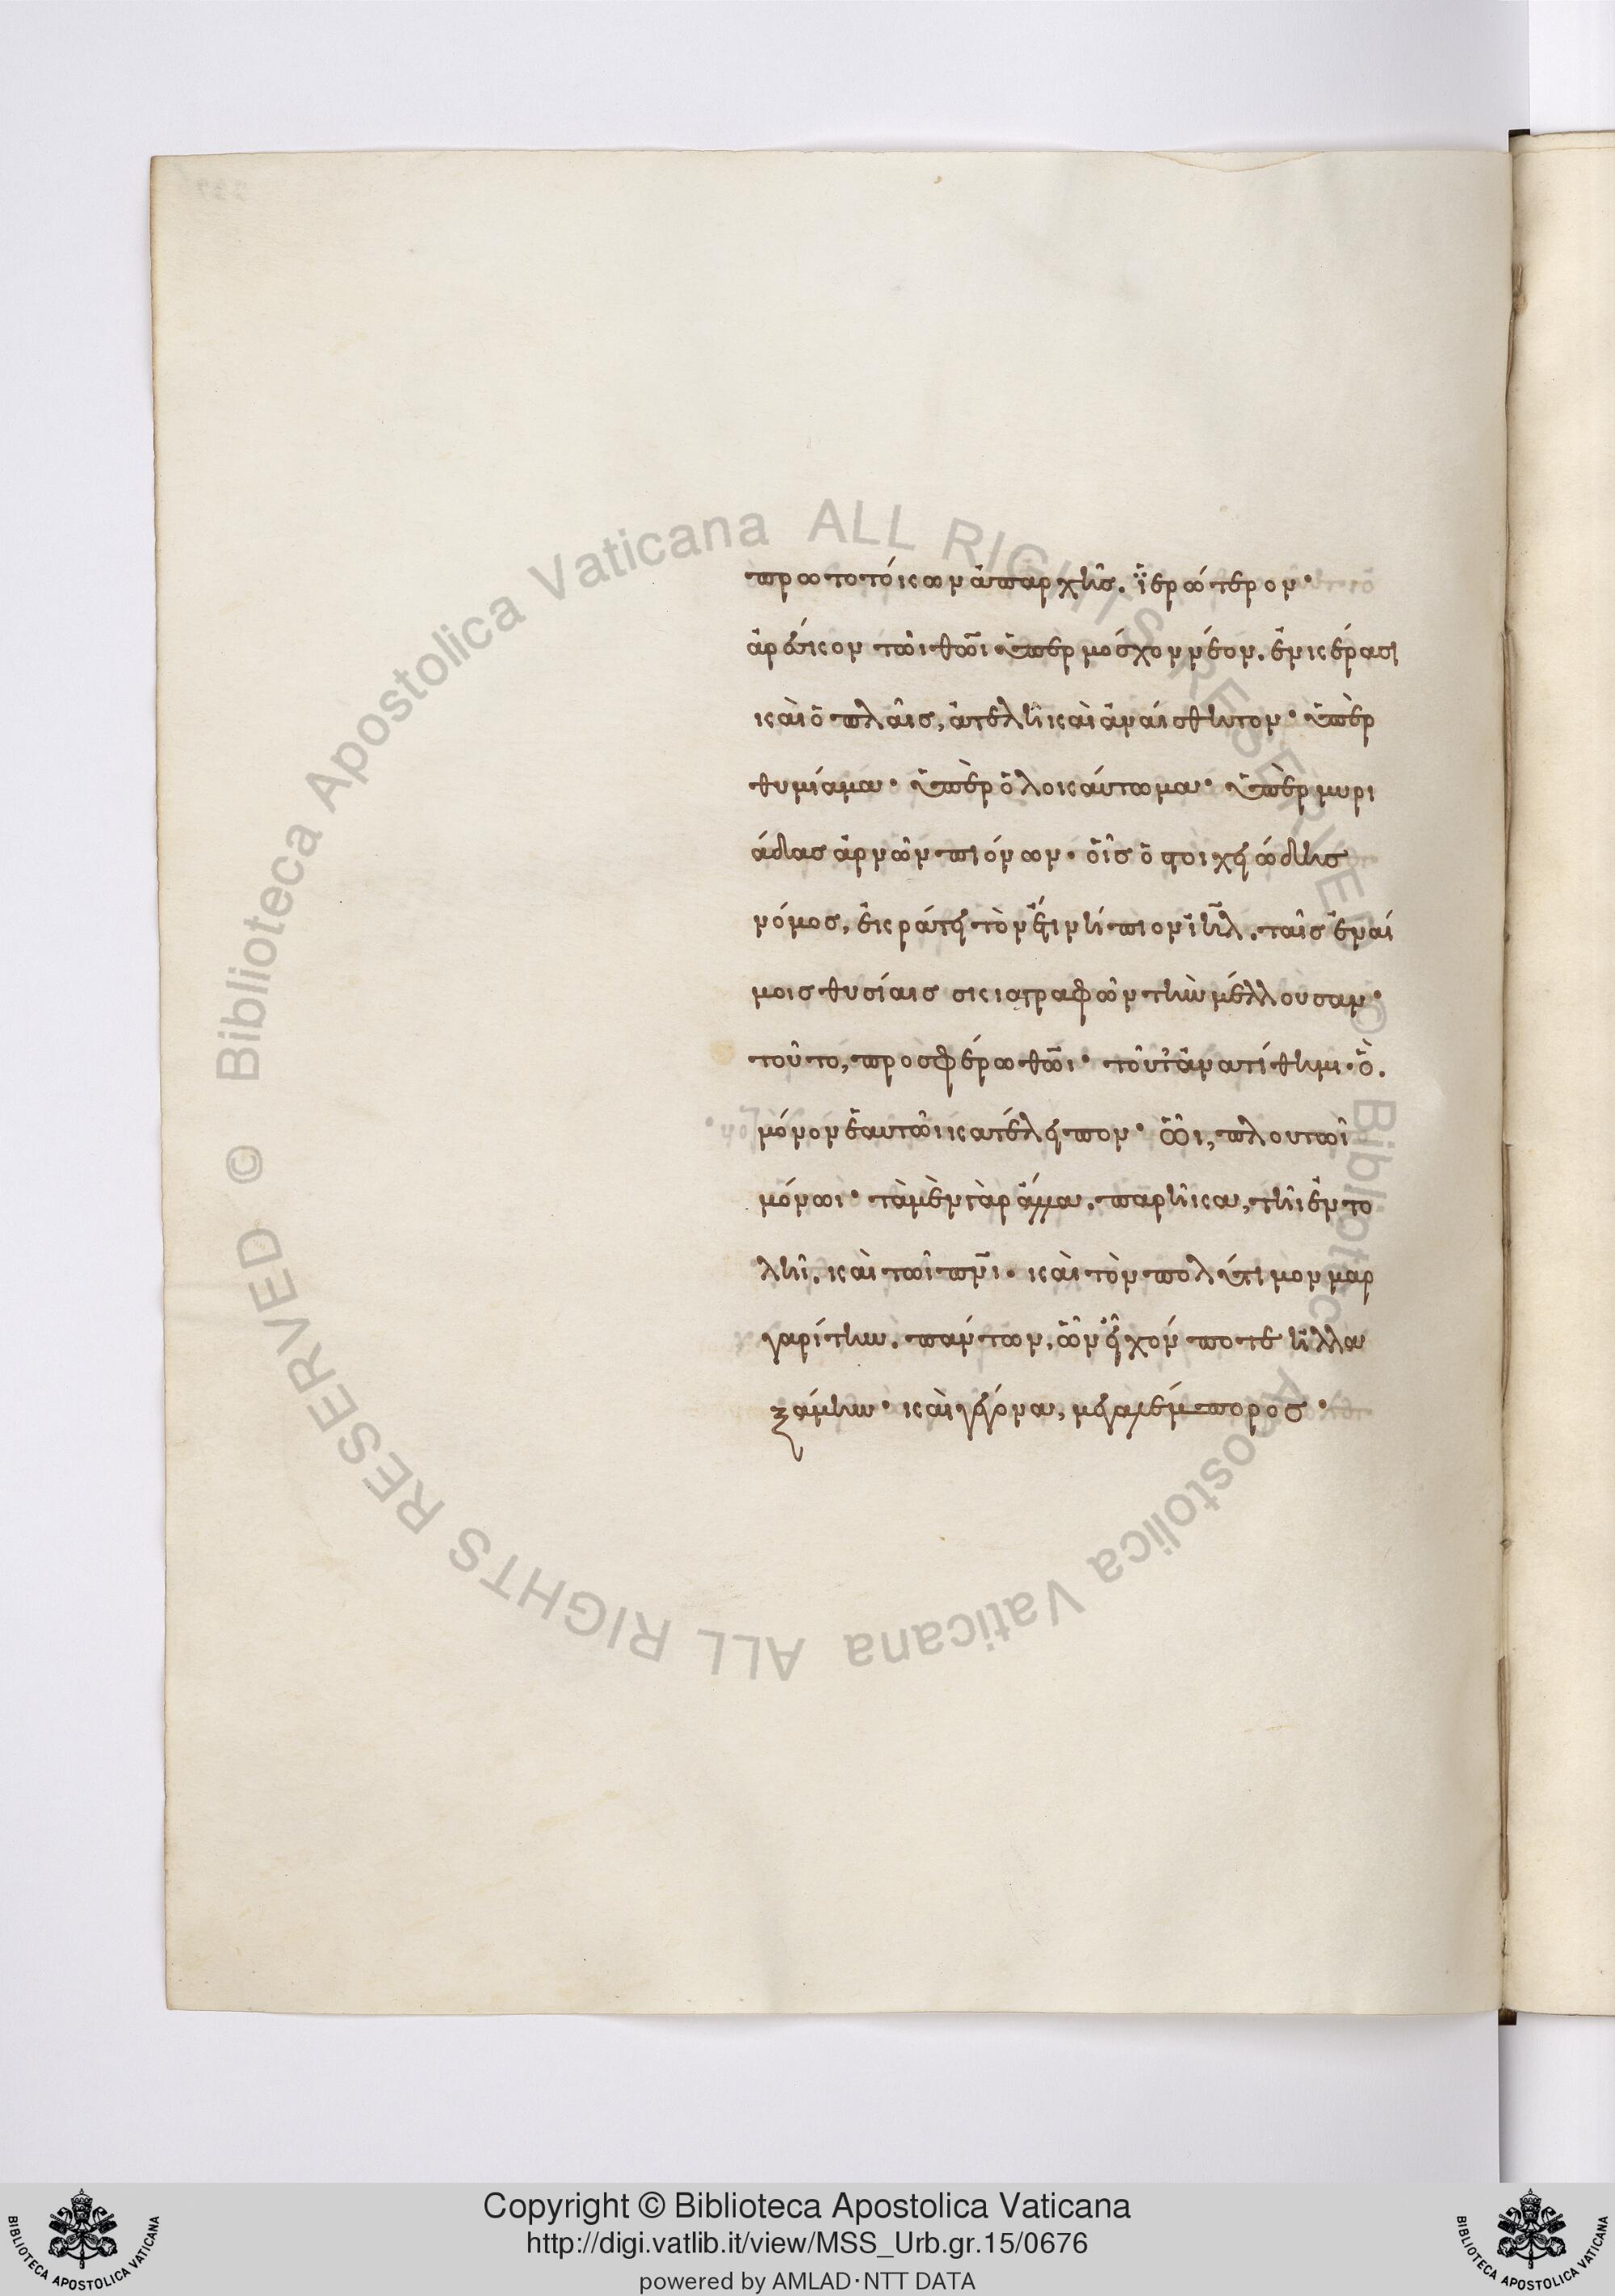 πρωτοτόκων ἀπαρχῆς. ἱερώτερον·
ἀρέσκον τῶι θῶι ὑπερ μόσχον νέον. ἐν κέρασι
καὶ ὁπλαῖς, ἀτελῆ καὶ ἀναίσθητον· ὑπὲρ
θυμίαμα· ὑπὲρ ὁλοκάυτωμα· ὑπὲρ μυρι
άδας ἀρνῶν πιόνων· οἷς ὁ στοιχειώδης
νόμος, ἐκράτει τὸν ἔτι νήπιον ἰηλ. ταῖς ἐναί
μοις θυσίαις σκιαγραφῶν τὴν μέλλουσαν·
τοῦτο, προσφέρω θῶι· τοῦτ' ἀνατίθημι· ὃ.
μόνον ἐαυτῶι κατέλειπον· ὧι, πλουτῶ
μόνωι· τὰ μὲν γὰρ ἄλλα. παρῆκα, τῆι ἐντο
λῆι. καὶ τῶι πνι· καὶ τὸν πολύτιμον μαρ
γαρίτην. πάντων, ὧν εἶχόν ποτε ἠλλα
ξάμην· καὶ γέγονα, μέγας ἔμπορος·
Copyright © Biblioteca Apostolica Vaticana
http://digi.vatlib.it/view/MSS_Urb.gr.15/0676
powered by AMLAD·NTT DATA
BIBLIOTECA APOSTOLICA VATICANA
BIBLIOTECA APOSTOLICA VATICANA
© Biblioteca Apostolica Vaticana ALL RIGHTS RESERVED © Biblioteca Apostolica Vaticana ALL RIGHTS RESERVED